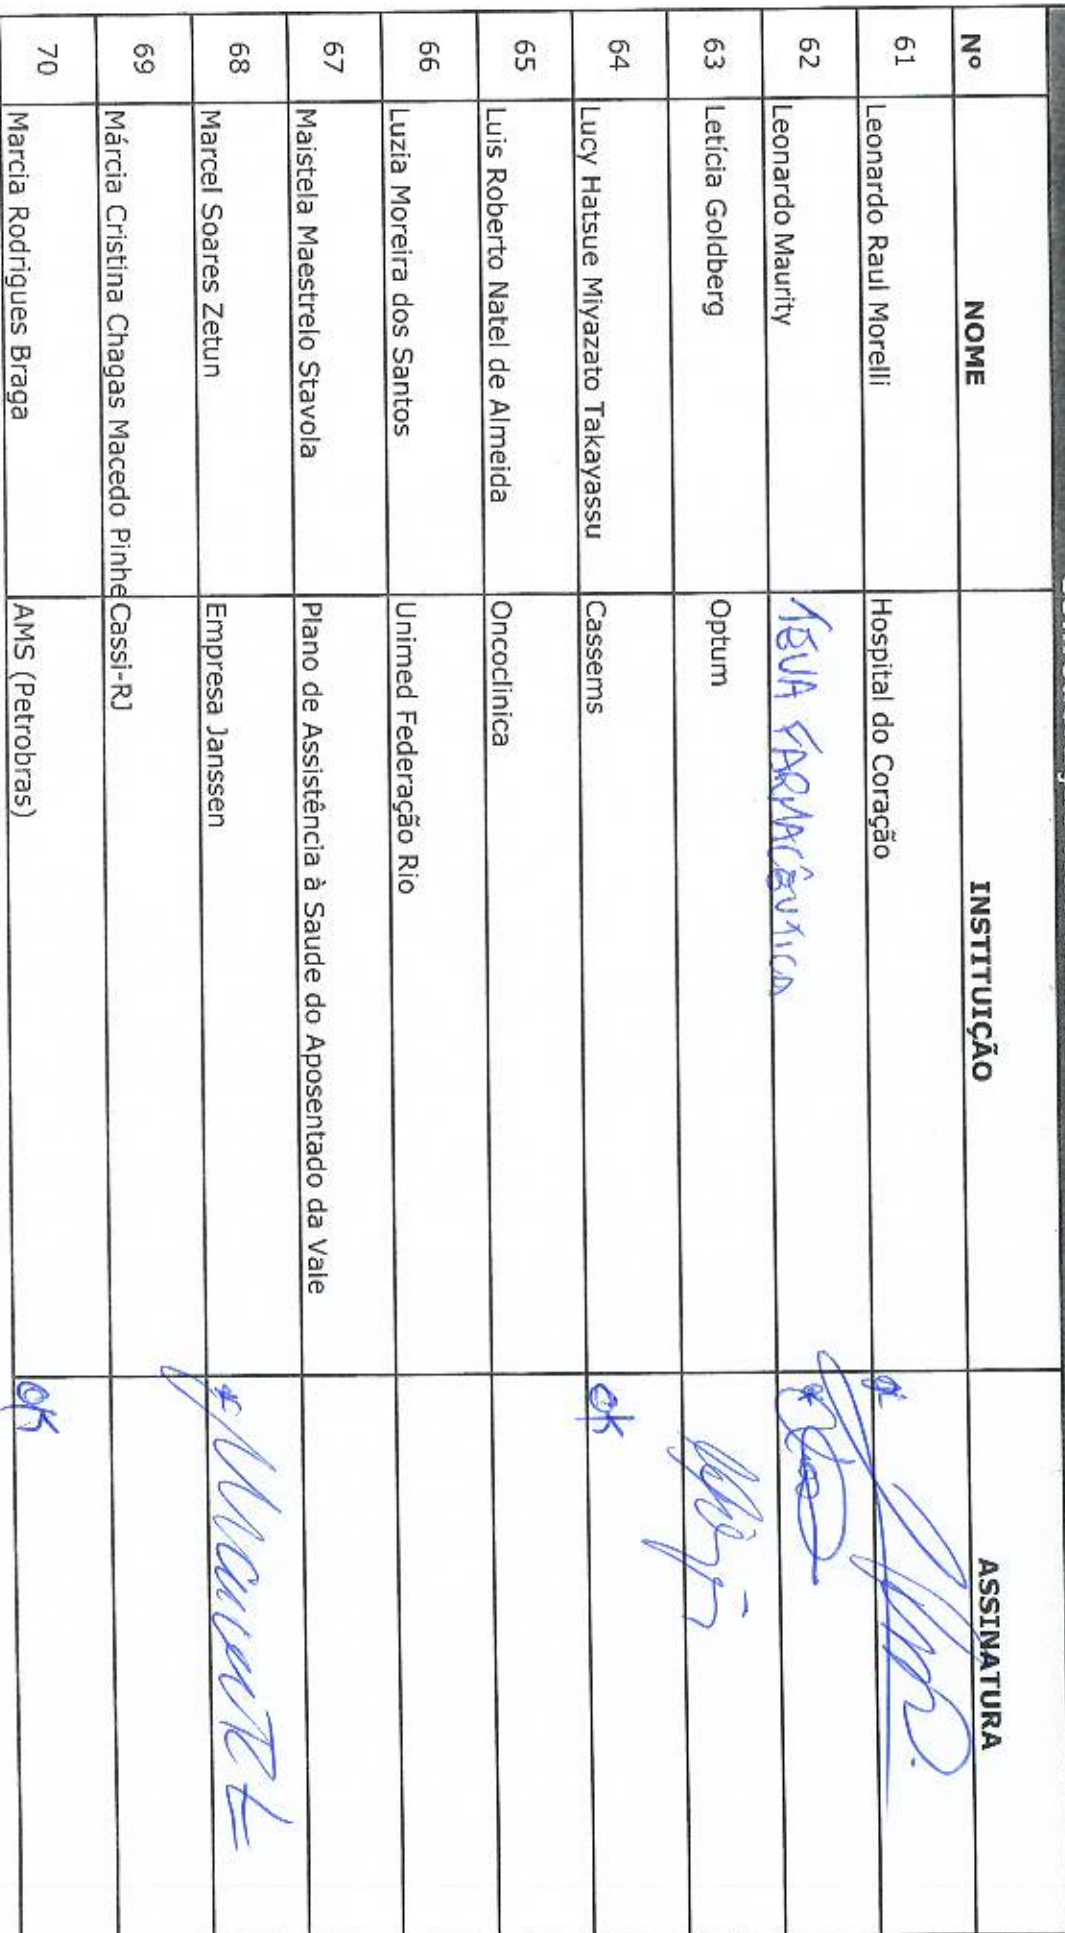 Nº NOME INSTITUIÇÃO ASSINATURA
61 Leonardo Raul Morelli Hospital do Coração
62 Leonardo Maurity TEVA FARMACÊUTICA
63 Letícia Goldberg Optum
64 Lucy Hatsue Miyazato Takayassu Cassems ok
65 Luis Roberto Natel de Almeida Oncoclinica
66 Luzia Moreira dos Santos Unimed Federação Rio
67 Maistela Maestrelo Stavola Plano de Assistência à Saude do Aposentado da Vale
68 Marcel Soares Zetun Empresa Janssen *
69 Márcia Cristina Chagas Macedo Pinhe Cassi-RJ
70 Marcia Rodrigues Braga AMS (Petrobras) ok